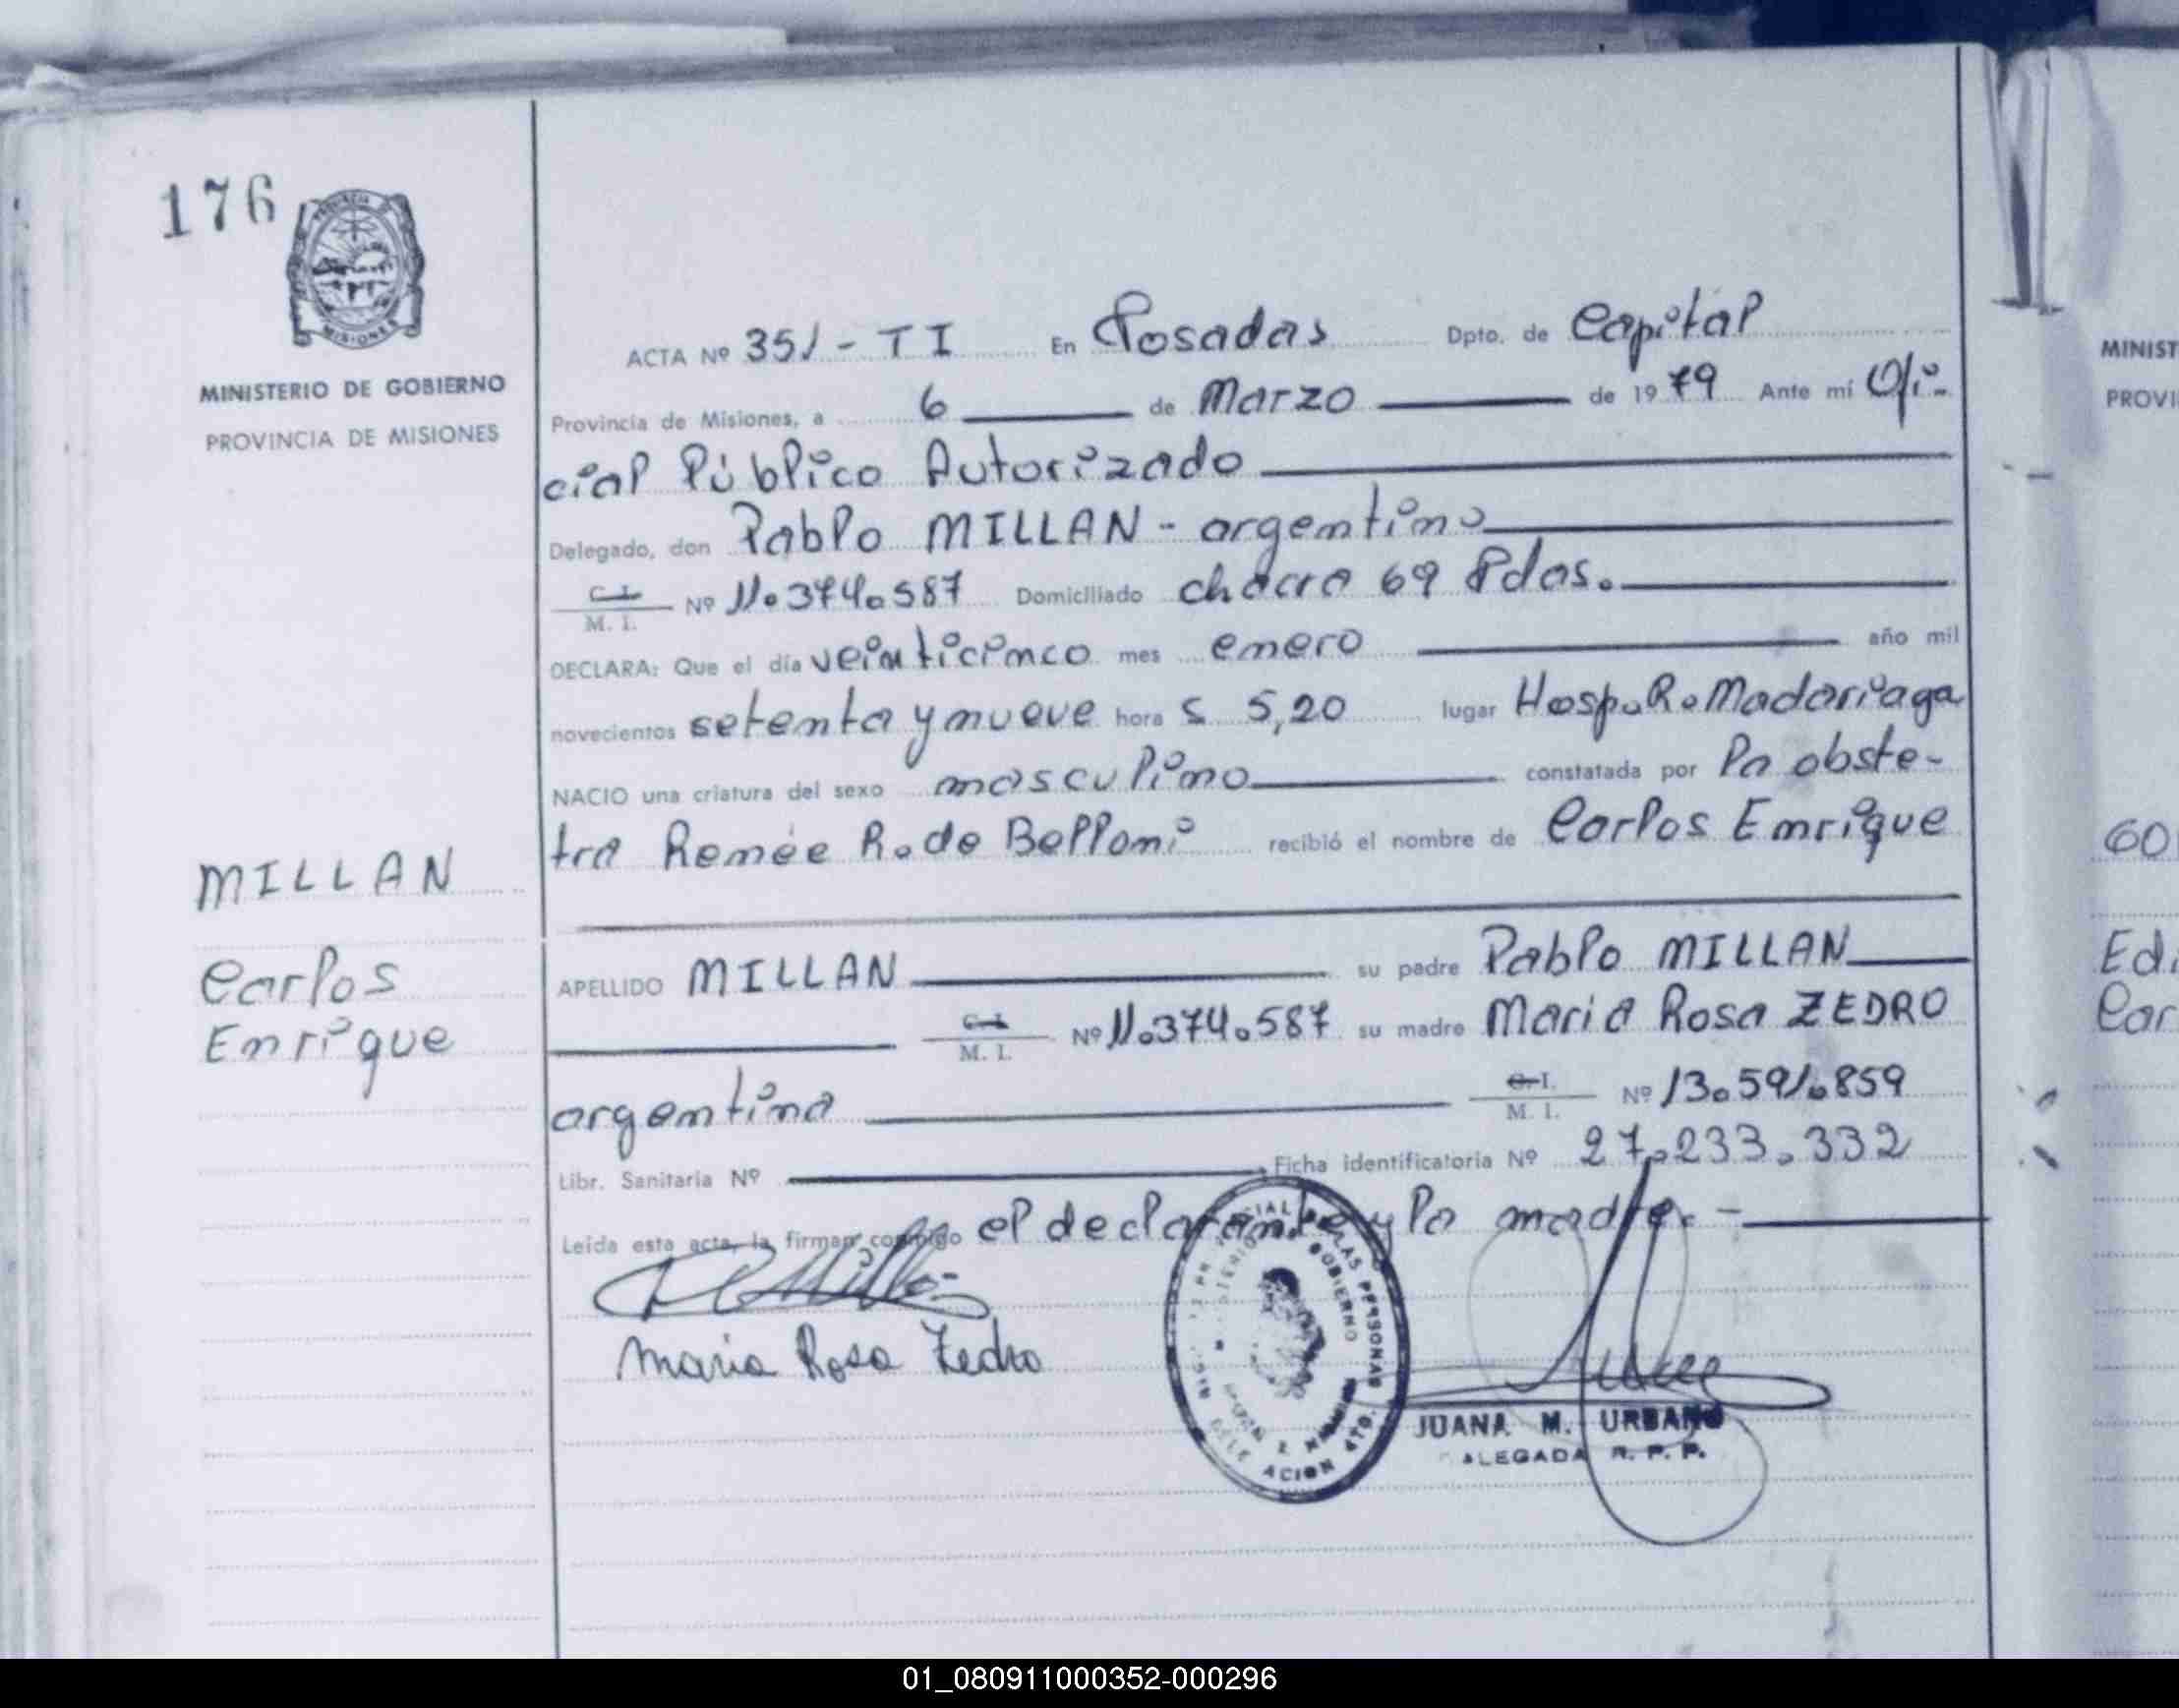 176
PROVINCIA DE
MISIONES
MINISTERIO DE GOBIERNO
PROVINCIA DE MISIONES
MILLAN
Carlos
Enrique
ACTA Nº 351 - T I En Posadas Dpto. de Capital
Provincia de Misiones, a 6 de Marzo de 1979 Ante mí Ofi-
cial Público Autorizado
Delegado, don Pablo MILLAN - argentino
C. I.
M. I. Nº 11.374.587 Domiciliado chacra 69 Pdas.
DECLARA: Que el día veinticinco mes enero año mil
novecientos setenta y nueve hora s 5,20 lugar Hosp. R. Madariaga
NACIO una criatura del sexo masculino constatada por la obste-
tra Renée R. de Belloni recibió el nombre de Carlos Enrique
APELLIDO MILLAN su padre Pablo MILLAN
C. I.
M. I. Nº 11.374.587 su madre Maria Rosa ZEDRO
argentina C. I.
M. I. Nº 13.591.859
Libr. Sanitaria Nº Ficha identificatoria Nº 27.233.332
Leída esta acta, la firman conmigo el declarante y la madre. -
Maria Rosa Zedro
JUANA M. URBANO
R. P. P.
MINIST
PROVI
GO
Ed
Car
01_080911000352-000296